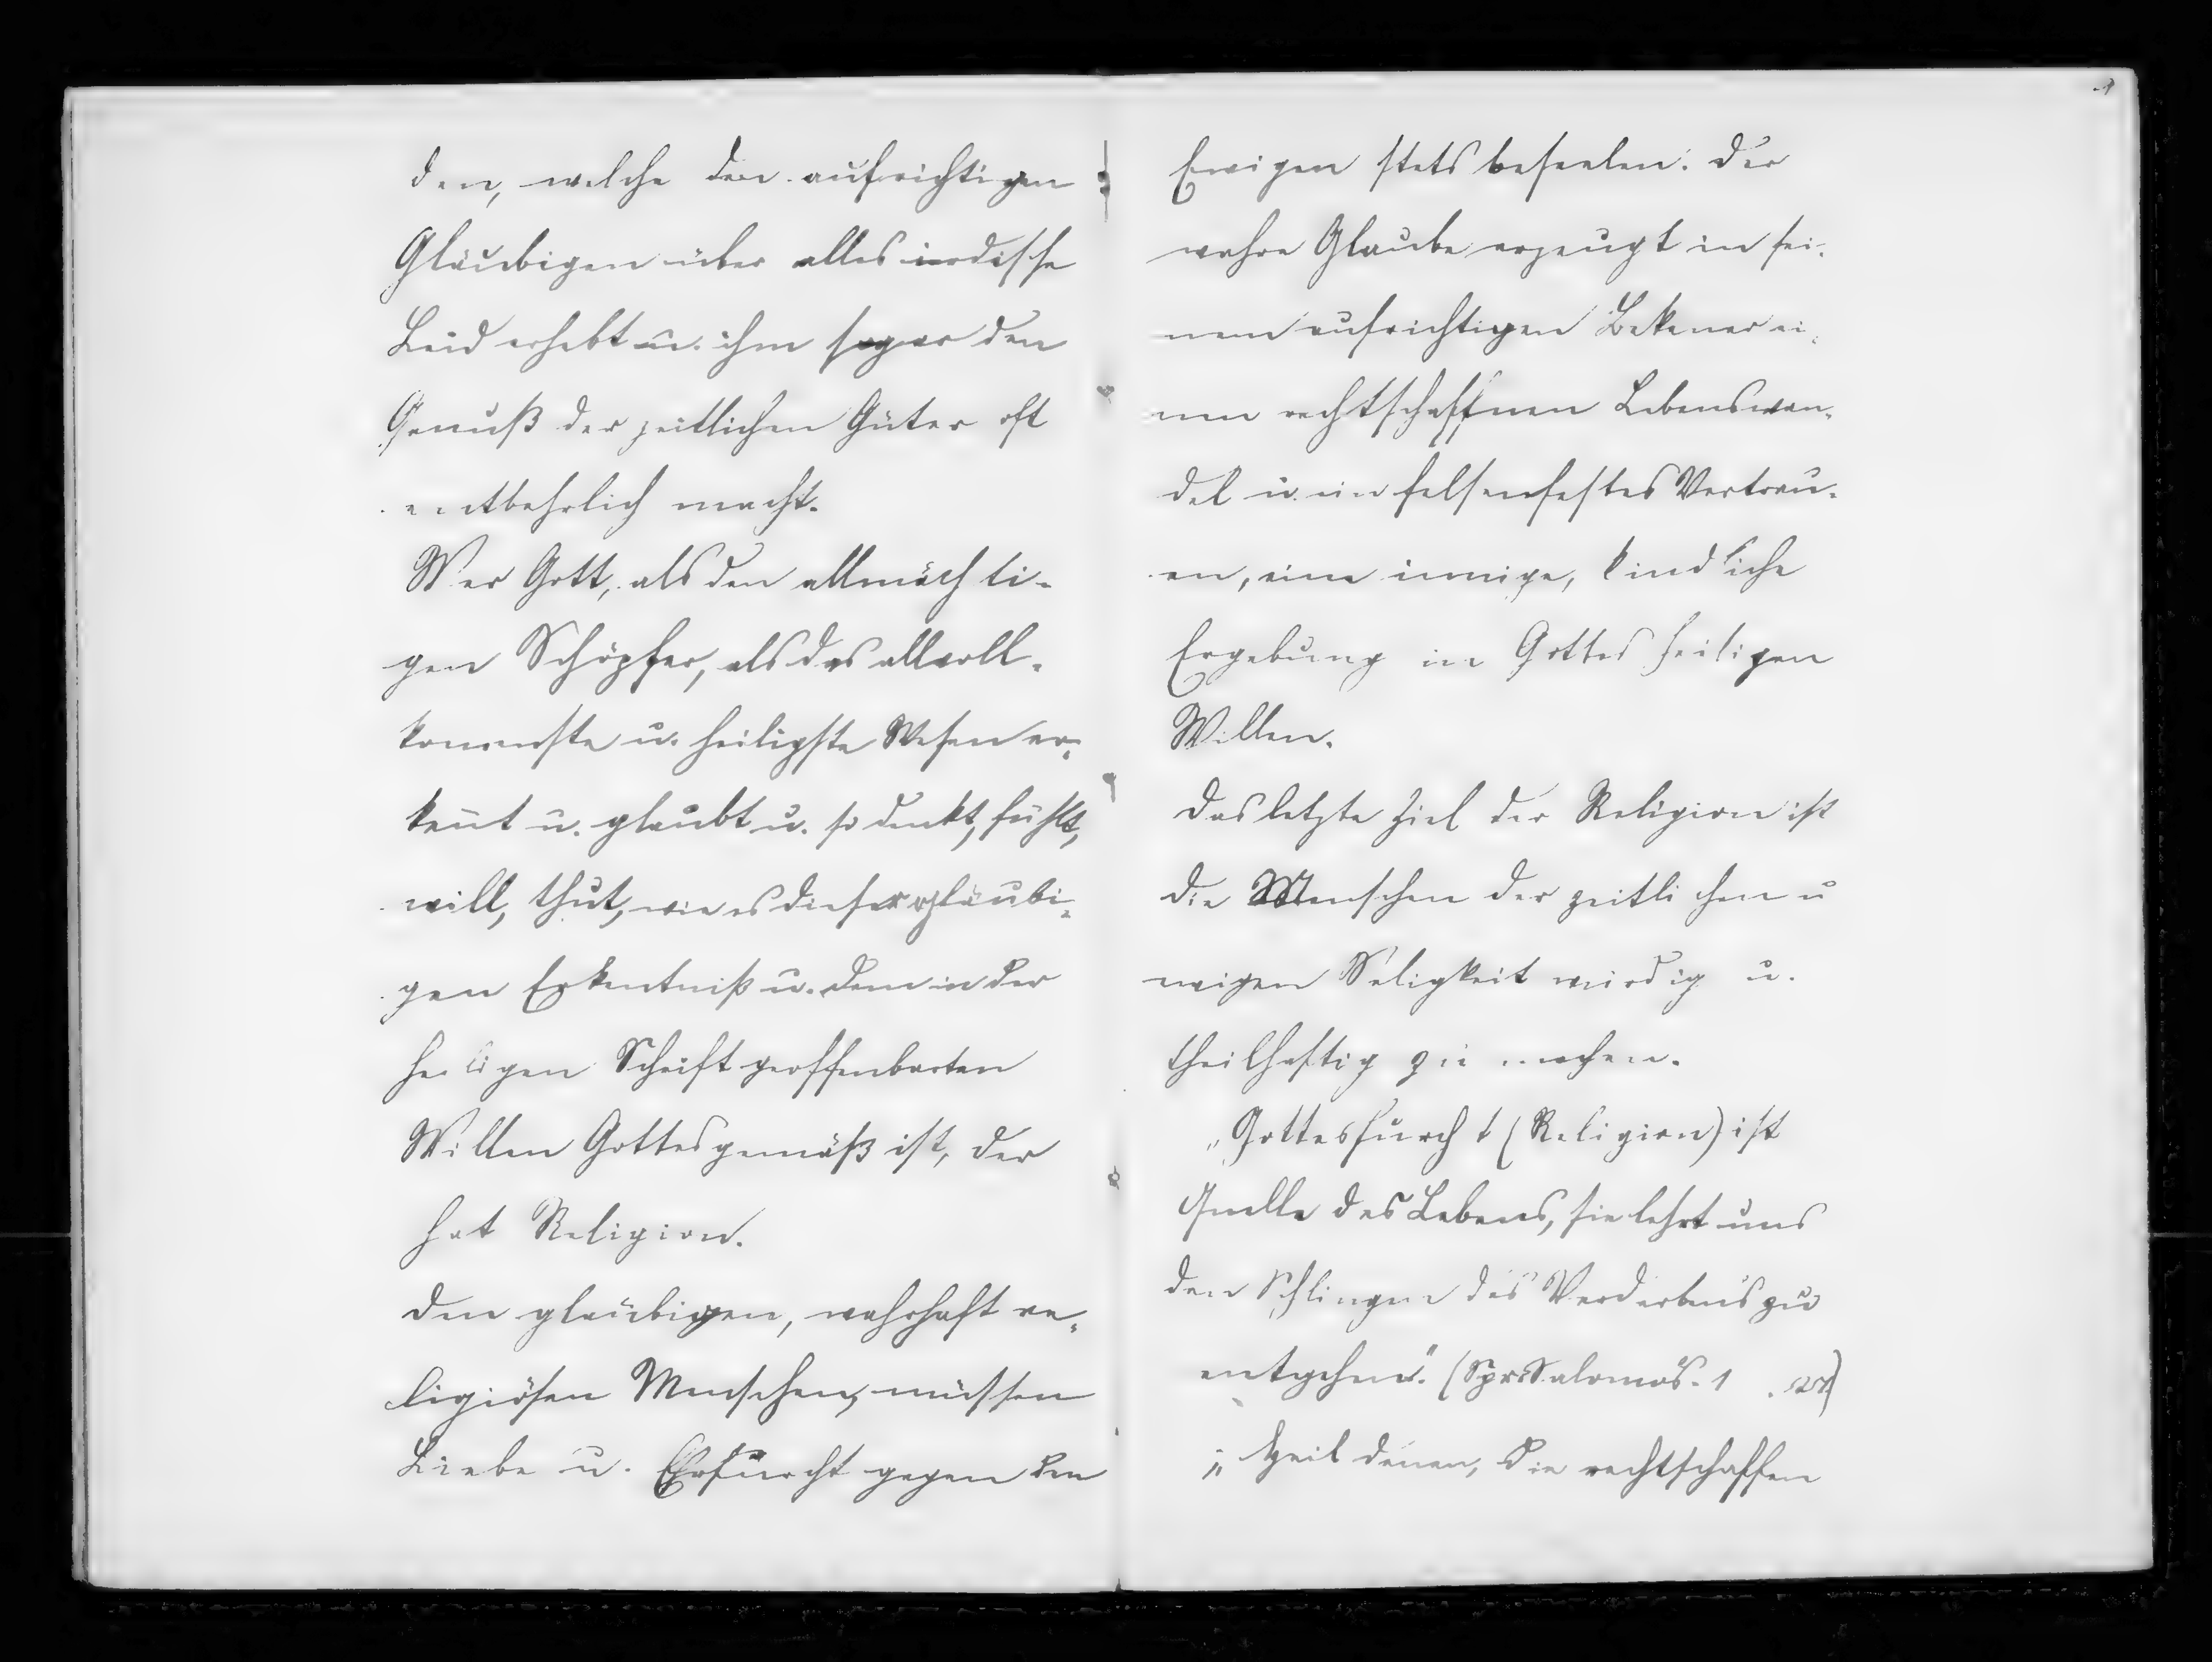 den, welche den aufrichtigen
Gläubigen über alles irdische
Leid erhebt u. ihm sogar den
Genuß der zeitlichen Güter oft
entbehrlich macht.
Wer Gott, als den allmächti-
gen Schöpfer, als das allvoll-
kommenste u. heiligste Wesen er-
kennt u. glaubt u. so denkt, fühlt,
will, thut, wie es dieser gläubi-
gen Erkentniß u. dem in der
heiligen Schrift geoffenbarten
Willen Gottes gemäß ist, der
hat Religion.
Den gläubigen, wahrhaft re-
ligiösen Menschen, müssen
Liebe u. Ehrfurcht gegen den
Ewigen stets beseelen. Der
wahre Glaube erzeugt in sei-
nem aufrichtigen Bekener ei-
nen rechtschaffnen Lebenswan-
del u. ein felsenfestes Vertrau-
en, eine innige, kindliche
Ergebung in Gottes heiligen
Willen.
Das letzte Ziel der Religion ist
die Menschen der zeitlichen u
ewigen Seligkeit würdig u.
theilhaftig zu machen.
„Gottesfurcht (Religion) ist
Quelle des Lebens, sie lehrt uns
den Schlingen des Verderbens zu
entgehen." (Spr. Salomos. 1
„Heil denen, die rechtschaffen